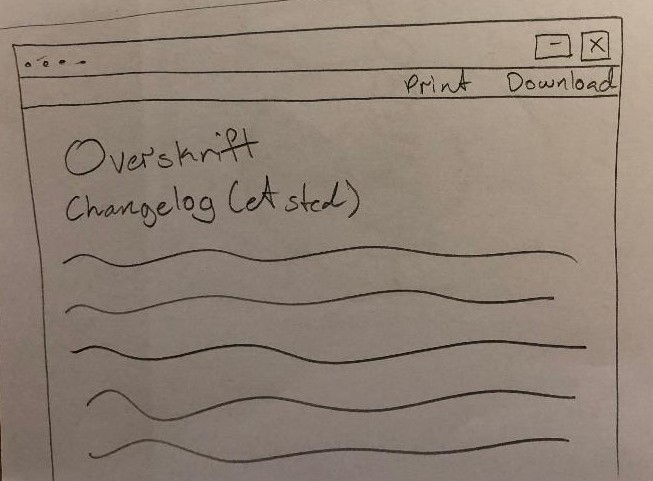 Print Download
Overskrift
Changelog (et sted)